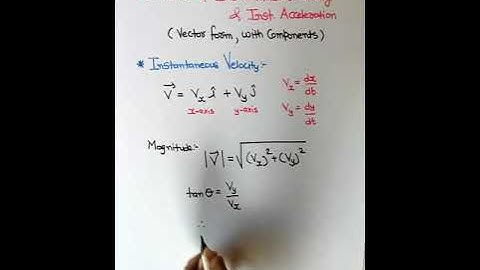 & Inst. Acceleration
(Vector form, with Components)
* Instantaneous Velocity:-
V⃗ = Vx î + Vy ĵ
x-axis y-axis
Vx = dx/dt
Vy = dy/dt
Magnitude:-
|V⃗| = √(Vx)² + (Vy)²
tanθ = Vy/Vx
∴